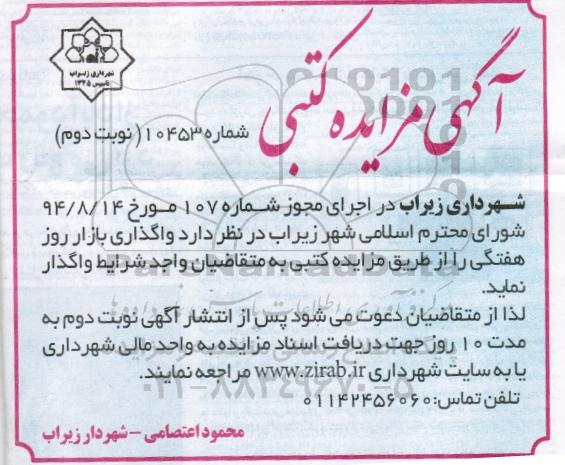 شهرداری زیراب
تاسیس ۱۳۴۵
آگهی مزایده کتبی
شماره ۱۰۴۵۳ ( نوبت دوم )
شهرداری زیراب در اجرای مجوز شماره ۱۰۷ مورخ ۹۴/۸/۱۴
شورای محترم اسلامی شهر زیراب در نظر دارد واگذاری بازار روز
هفتگی را از طریق مزایده کتبی به متقاضیان واجد شرایط واگذار
نماید.
لذا از متقاضیان دعوت می شود پس از انتشار آگهی نوبت دوم به
مدت ۱۰ روز جهت دریافت اسناد مزایده به واحد مالی شهرداری
یا به سایت شهرداری www.zirab.ir مراجعه نمایند.
تلفن تماس: ۰۱۱۴۲۴۵۶۰۶۰
محمود اعتصامی - شهردار زیراب
۰۲۱-۸۸۳۴۹۶۷۰-۵